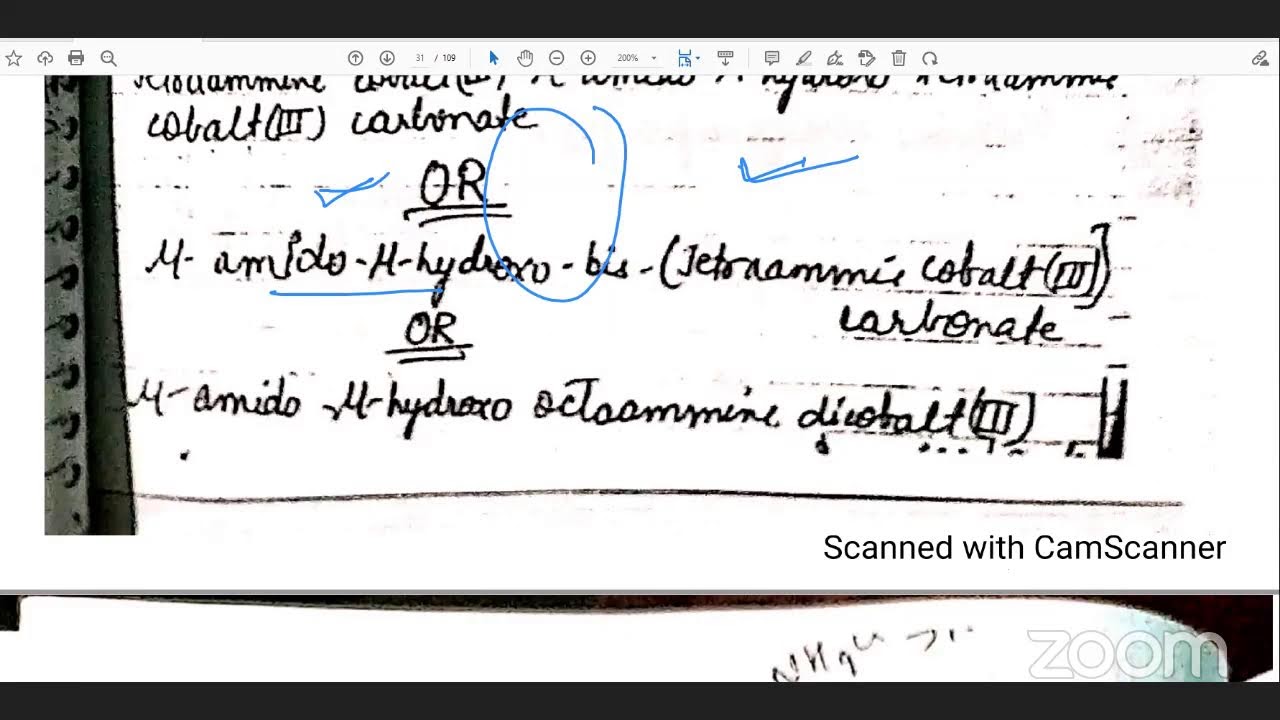 31 / 109 200%
cobalt(III) carbonate
OR
μ- amido-μ-hydroxo-bis-(Tetraammie cobalt(III))
carbonate
OR
μ-amido μ-hydroxo octaammine dicobalt(III)
Scanned with CamScanner
zoom